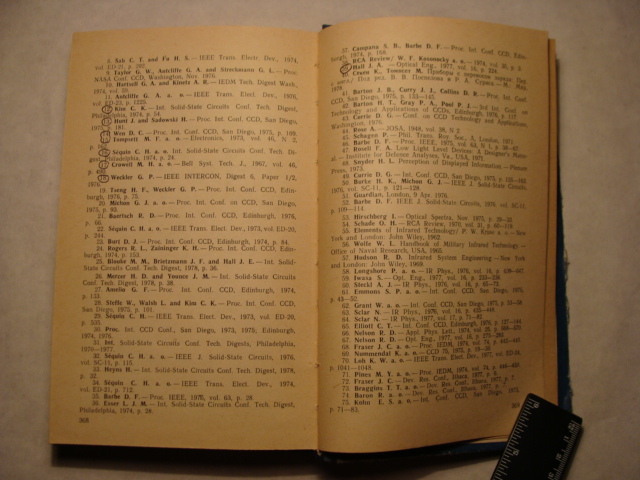 8. Sah C. T. and Fu H. S. — IEEE Trans. Electr. Dev., 1974,
vol. ED-21, p. 202.
9. Taylor G. W., Autcliffe G. A. and Strechmann G. L. — Proc.
NASA Conf. CCD, Washington, Nov. 1976.
10. Hartsell G. A. and Kmetz A. R. — IEDM Tech. Digest Wash.,
1974, vol. 20.
11. Autcliffe G. A. a. o. — IEEE Trans. Elect. Dev., 1976,
vol. ED-23,
12 Kim C. K. — Int. Solid-State Circuits Conf. Tech. Digest,
Philadelphia, 1974, p. 54.
13 Hunt J. and Sadowski H. — Proc. Int. Conf. CCD, San Diego,
1975, p. 181.
14 Wen D. C. — Proc. Int. Conf. CCD, San Diego, 1975, p. 109.
15 Tompsett M. F. a. o. — Electronics, 1973, vol. 46, N 2,
16 Séquin C. H. a. o. Int. Solid-State Circuits Conf. Tech. Digest,
Philadelphia, 1974, p. 24.
17 Crowell M. H. a. o. — Bell Syst. Tech. J., 1967, vol. 46,
18 Weckler G. P. — IEEE INTERCON, Digest 6, Paper 1/2,
1976.
19. Tseng H. F., Weckler G. P. — Int. Conf. CCD, Edin-
burgh, 1976, p. 73.
20. Michon G. J. a. o. — Proc. Int. Conf. on CCD, San Diego,
1975, p. 93.
21. Buertsch R. D. — Proc. Int. Conf. CCD, Edinburgh, 1976,
p. 66.
22. Séquin C. H. a. o. — IEEE Trans. Elect Dev., 1973, vol. ED-20,
p. 244.
23. Burt D. J. — Proc. Int. Conf. CCD, Edinburgh, 1974, p. 84.
24. Rogers R. L., Zaininger K. H. — Proc. Int. Conf. CCD, Edin-
burgh, 1974, p. 153.
25. Blouke M. M., Brietzmann J. F. and Hall J. E. — Int. Solid-
State Circuits Conf. Tech. Digest, 1978, p. 36.
26. Merzer H. D. and Younes J. M. — Int. Solid-State Circuits
Conf. Tech. Digest, 1978, p. 38.
27. Amelio G. F. — Proc. Int. Conf. CCD, Edinburgh, 1974,
p. 133.
28. Steffe W., Walsh L. and Kim C. K. — Proc. Int. Conf. CCD,
San Diego, 1975, p. 101.
29. Séquin C. H. — IEEE Trans. Elect. Dev., 1973, vol. ED-20,
p. 535.
30. Proc. Int. CCD Conf., San Diego, 1973, 1975; Edinburgh,
1974, 1976.
31. Int. Solid-State Circuits Conf. Tech. Digests, Philadelphia,
1970—1977.
32. Séquin C. H. a. o. — IEEE J. Solid-State Circuits, 1976,
vol. SC-11, p. 115.
33. Heyns H. — Int. Solid-State Circuits Conf. Tech. Digest, 1978,
p. 32.
34. Séquin C. H. a. o. — IEEE Trans. Elect. Dev., 1974,
vol. ED-21, p. 712.
35. Barbe D. F. — Proc. IEEE, 1975, vol. 63, p. 38.
36. Esser L. J. M. — Int. Solid-State Circuits Conf. Tech. Digest,
Philadelphia, 1974, p. 28.
368
37. Campana S. B., Barbe D. F. — Proc. Int. Conf. CCD, Edin-
burgh, 1974, p. 168.
RCA Review/ W. F. Kosonocky a. o. — 1974, vol 35, p. 3
Hall J. A. — Optical Eng., 1977, vol 16, p. 224.
41. Barton J. B., Curry J. J., Collins D. R. — Proc. Int. Conf.
CCD, San Diego, 1975, p. 133—145.
42. Barton H. T., Gray P. A., Paul P. J. — Int. Conf. on
Technology and Applications of CCDs, Edinburgh, 1976, p. 117
43. Currie D. G. — Conf. on CCD Technology and Applications,
Washington, 1976.
44. Rose A. — JOSA, 1948, vol. 38, N 2.
45. Schagen P. — Phil. Trans. Roy Soc., A, London, 1971.
46. Barbe D. F. — Proc. IEEE, 1975, vol. 63, N 1, p. 38—67.
47. Rosell F. A. Low Light Level Devices: A Designer's Manu-
al. — Institute for Defense Analyses, Va., USA, 1971.
48. Snyder H. L. Perception of Displayed Information — Plenum
Press, 1973.
49. Currie D. G. — Int. Conf. CCD, San Diego, 1975, p. 165—165.
50. Burke H. K., Michon G. J. — IEEE J. Solid-State Circuits,
1976, vol. SC-11, p. 121—128.
51. Guardian, London, 9 Apr. 1976.
52. Barbe D. F. IEEE J. Solid-State Circuits, 1976, vol. SC-11,
p. 109—114.
53. Hirschberg I. — Optical Spectra, Nov 1975, p. 28—35.
54. Schade O. H. — RCA Review, 1970, vol. 31, p. 60—119.
55. Elements of Infrared Technology/ P. W. Kruse a. o. — New
York and London: John Wiley, 1962.
56. Wolfe W. L. Handbook of Military Infrared Technology —
Office of Naval Research, USA, 1965.
57. Hudson R. D. Infrared System Engineering — New York
and London: John Wiley, 1969.
58. Longshore P. a. o. — IR Phys., 1976, vol 16, p. 639—647.
59. Iwasa S. — Opt. Eng., 1977, vol. 16, p. 233—236.
60. Steckl A. J. — IR Phys., 1976, vol. 16, p. 65—73.
61. Emmons S. P. a. o. — Int. Conf. CCD, San Diego, 1975,
p. 43—52.
62. Grant W. a. o. — Int. Conf. CCD, San Diego, 1975, p. 53—58.
63. Sclar N. — IR Phys., 1976, vol. 16, p. 435—448.
64. Sclar N. — IR Phys., 1977, vol. 17, p. 71—82.
65. Elliott C. T. — Int. Conf. CCD, Edinburgh, 1976, p. 137—144.
66. Nelson R. D. — Appl. Phys. Lett., 1974, vol. 25, p. 568—570.
67. Nelson R. D. — Opt. Eng., 1977, vol. 16, p. 275—283.
68. Fraser J. C. a. o. — Proc. IEDM, 1974, p. 442—445.
69. Nummendal K. a. o. — CCD 75, 1975, p. 19—30.
70. Loh K. W. a. o. — IEEE Trans. Elect. Dev., 1977, vol. ED-24,
p. 1041—1048.
71. Pines M. Y. a. o. — Proc. IEDM, 1974, p. 446—450.
72. Fraser J. C. — Dev. Res. Conf., Ithaca, 1977, p. 6.
73. Bruggins T. T. a. o. — Dev. Res. Conf., Ithaca, 1977, p. 7.
74. Baron R. a. o. — Dev. Res. Conf., Ithaca, 1977, p. 7.
75. Kohn E. S. a. o. — Int. Conf. CCD, San Diego, 1975,
p. 71—83.